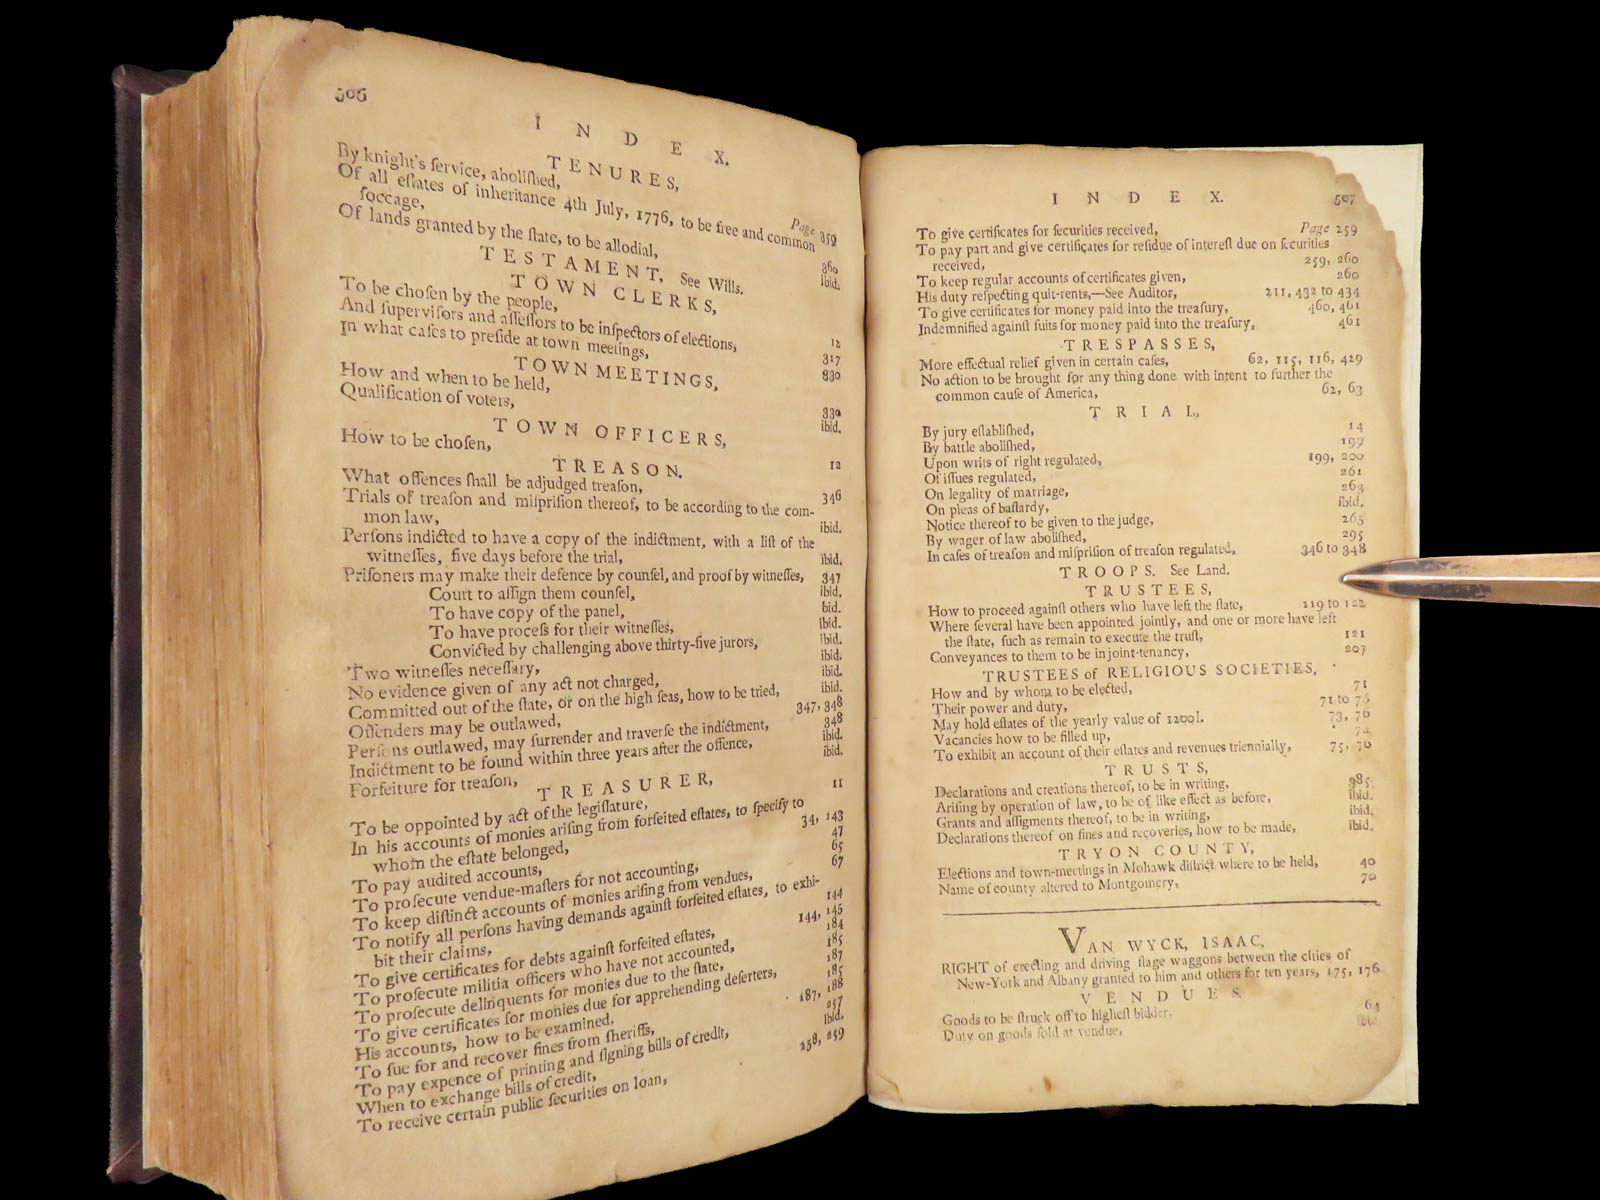 506
INDEX.
TENURES,
By knight's ſervice, aboliſhed, Page 359
Of all eſtates of inheritance 4th July, 1776, to be free and common
ſoccage, 360
Of lands granted by the ſtate, to be allodial, ibid.
TESTAMENT, See Wills.
TOWN CLERKS,
To be choſen by the people, 12
And ſuperviſors and aſſeſſors to be inſpectors of elections, 317
In what caſes to preſide at town meetings, 330
TOWN MEETINGS,
How and when to be held, 330
Qualification of voters, ibid.
TOWN OFFICERS,
How to be choſen, 12
TREASON.
What offences ſhall be adjudged treaſon, 346
Trials of treaſon and miſpriſion thereof, to be according to the com-
mon law, ibid.
Perſons indicted to have a copy of the indictment, with a liſt of the
witneſſes, five days before the trial, ibid.
Priſoners may make their defence by counſel, and proof by witneſſes, 347
Court to aſſign them counſel, ibid.
To have copy of the panel, bid.
To have proceſs for their witneſſes, ibid.
Convicted by challenging above thirty-five jurors, ibid.
Two witneſſes neceſſary, ibid.
No evidence given of any act not charged, ibid.
Committed out of the ſtate, or on the high ſeas, how to be tried, ibid.
Offenders may be outlawed, 347, 348
Perſons outlawed, may ſurrender and traverſe the indictment, 348
Indictment to be found within three years after the offence, ibid.
Forfeiture for treaſon, ibid.
TREASURER,
To be oppointed by act of the legiſlature, 11
In his accounts of monies ariſing from forfeited eſtates, to ſpecify to
whom the eſtate belonged, 34, 143
To pay audited accounts, 47
To proſecute vendue-maſters for not accounting, 65
To keep diſtinct accounts of monies ariſing from vendues, 67
To notify all perſons having demands againſt forfeited eſtates, to exhi-
bit their claims, 144
To give certificates for debts againſt forfeited eſtates, 144, 145
To proſecute militia officers who have not accounted, 184
To proſecute delinquents for monies due to the ſtate, 185
To give certificates for monies due for apprehending deſerters, 187
His accounts, how to be examined, 185
To ſue for and recover fines from ſheriffs, 187, 188
To pay expence of printing and ſigning bills of credit, 257
When to exchange bills of credit, ibid.
To receive certain public ſecurities on loan, 258, 259
INDEX. 507
To give certificates for ſecurities received, Page 259
To pay part and give certificates for reſidue of intereſt due on ſecurities
received, 259, 260
To keep regular accounts of certificates given, 260
His duty reſpecting quit-rents,—See Auditor, 211, 432 to 434
To give certificates for money paid into the treaſury, 460, 461
Indemnified againſt ſuits for money paid into the treaſury, 461
TRESPASSES,
More effectual relief given in certain caſes, 62, 115, 116, 429
No action to be brought for any thing done with intent to further the
common cauſe of America, 62, 63
TRIAL,
By jury eſtabliſhed, 14
By battle aboliſhed, 199
Upon writs of right regulated, 199, 200
Of iſſues regulated, 261
On legality of marriage, 263
On pleas of baſtardy, ibid.
Notice thereof to be given to the judge, 265
By wager of law aboliſhed, 295
In caſes of treaſon and miſpriſion of treaſon regulated, 346 to 348
TROOPS. See Land.
TRUSTEES,
How to proceed againſt others who have left the ſtate, 119 to 122
Where ſeveral have been appointed jointly, and one or more have left
the ſtate, ſuch as remain to execute the truſt, 121
Conveyances to them to be in joint-tenancy, 207
TRUSTEES of RELIGIOUS SOCIETIES,
How and by whom to be elected, 71
Their power and duty, 71 to 76
May hold eſtates of the yearly value of 1200l. 73, 76
Vacancies how to be filled up,
To exhibit an account of their eſtates and revenues triennially, 75, 76
TRUSTS,
Declarations and creations thereof, to be in writing, 385
Ariſing by operation of law, to be of like effect as before, ibid.
Grants and aſſigments thereof, to be in writing, ibid.
Declarations thereof on fines and recoveries, how to be made, ibid.
TRYON COUNTY,
Elections and town-meetings in Mohawk diſtrict where to be held, 40
Name of county altered to Montgomery, 70
VAN WYCK, ISAAC,
RIGHT of erecting and driving ſtage waggons between the cities of
New-York and Albany granted to him and others for ten years, 175, 176
VENDUES.
Goods to be ſtruck off to higheſt bidder, 64
Duty on goods ſold at vendue, ibid.